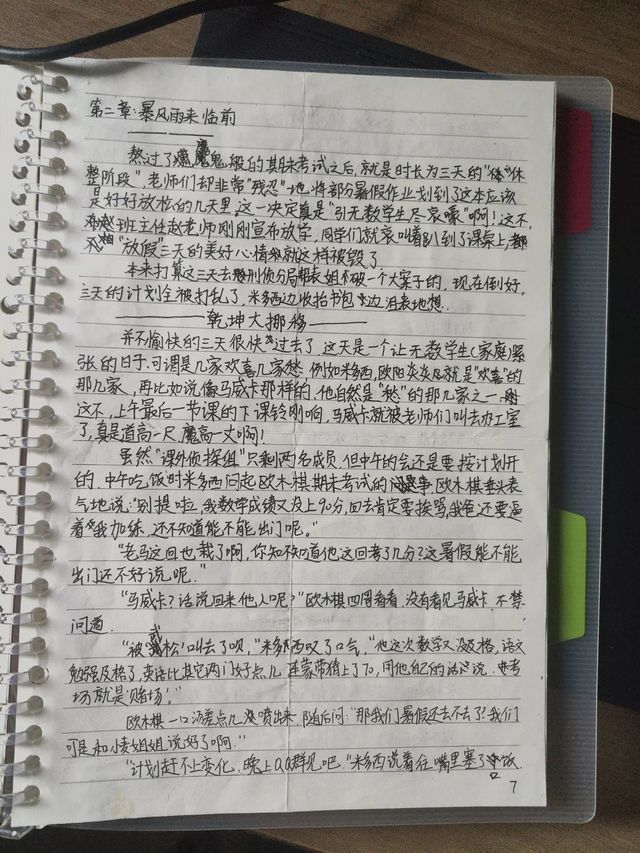 第二章:暴风雨来临前
熬过了魔鬼般的期末考试之后,就是时长为三天的"休
整阶段",老师们却非常"残忍"地将部分暑假作业划到了这本应该
是好好放松的几天里。这一决定真是"引无数学生尽哀嚎"啊!这不,
班主任赵老师刚刚宣布放学,同学们就哀叫着趴到了课桌上,
"放假"三天的美好心情就这样被毁了
本来打算这三天去刑侦分局帮表姐破一个大案子的,现在倒好,
三天的计划全被打乱了,米多西边收拾书包边沮丧地想.
乾坤大挪移
并不愉快的三天很快过去了.这天是一个让无数学生(家庭)紧
张的日子.可谓是几家欢喜几家愁.例如米多西,欧阳炎炎就是"欢喜"的
那几家,再比如说像马威卡那样的,他自然是"愁"的那几家之一.
这不,上午最后一节课的下课铃刚响,马威卡就被老师们叫去办工室
了,真是道高一尺,魔高一丈啊!
虽然"课外侦探组"只剩两名成员,但中午的会还是要按计划开
的.中午吃饭时米多西问起欧木棋期末考试的事,欧木棋垂头丧
气地说:"别提啦,我数学成绩又没上90分,回去肯定要挨骂,我爸还要逼
着我加练,还不知道能不能出门呢。"
"老马这回也栽了啊,你知不知道他这回考了几分?这暑假能不能
出门还不好说呢."
"马威卡?话说回来他人呢?"欧木棋四周看看,没有看见马威卡,不禁
问道.
"被'武松'叫去了呗,"米多西叹了口气,"他这次数学又没及格,语文
勉强及格了,英语比其它两门好点儿,连蒙带猜上了70,用他自己的话说.'考
场就是赌场'."
欧木棋一口汤差点儿没喷出来,随后问:"那我们暑假还去不去了?我们
可是和小姜姐姐说好了啊."
"计划赶不上变化.晚上QQ群见吧."米多西说着往嘴里塞了口饭.
7